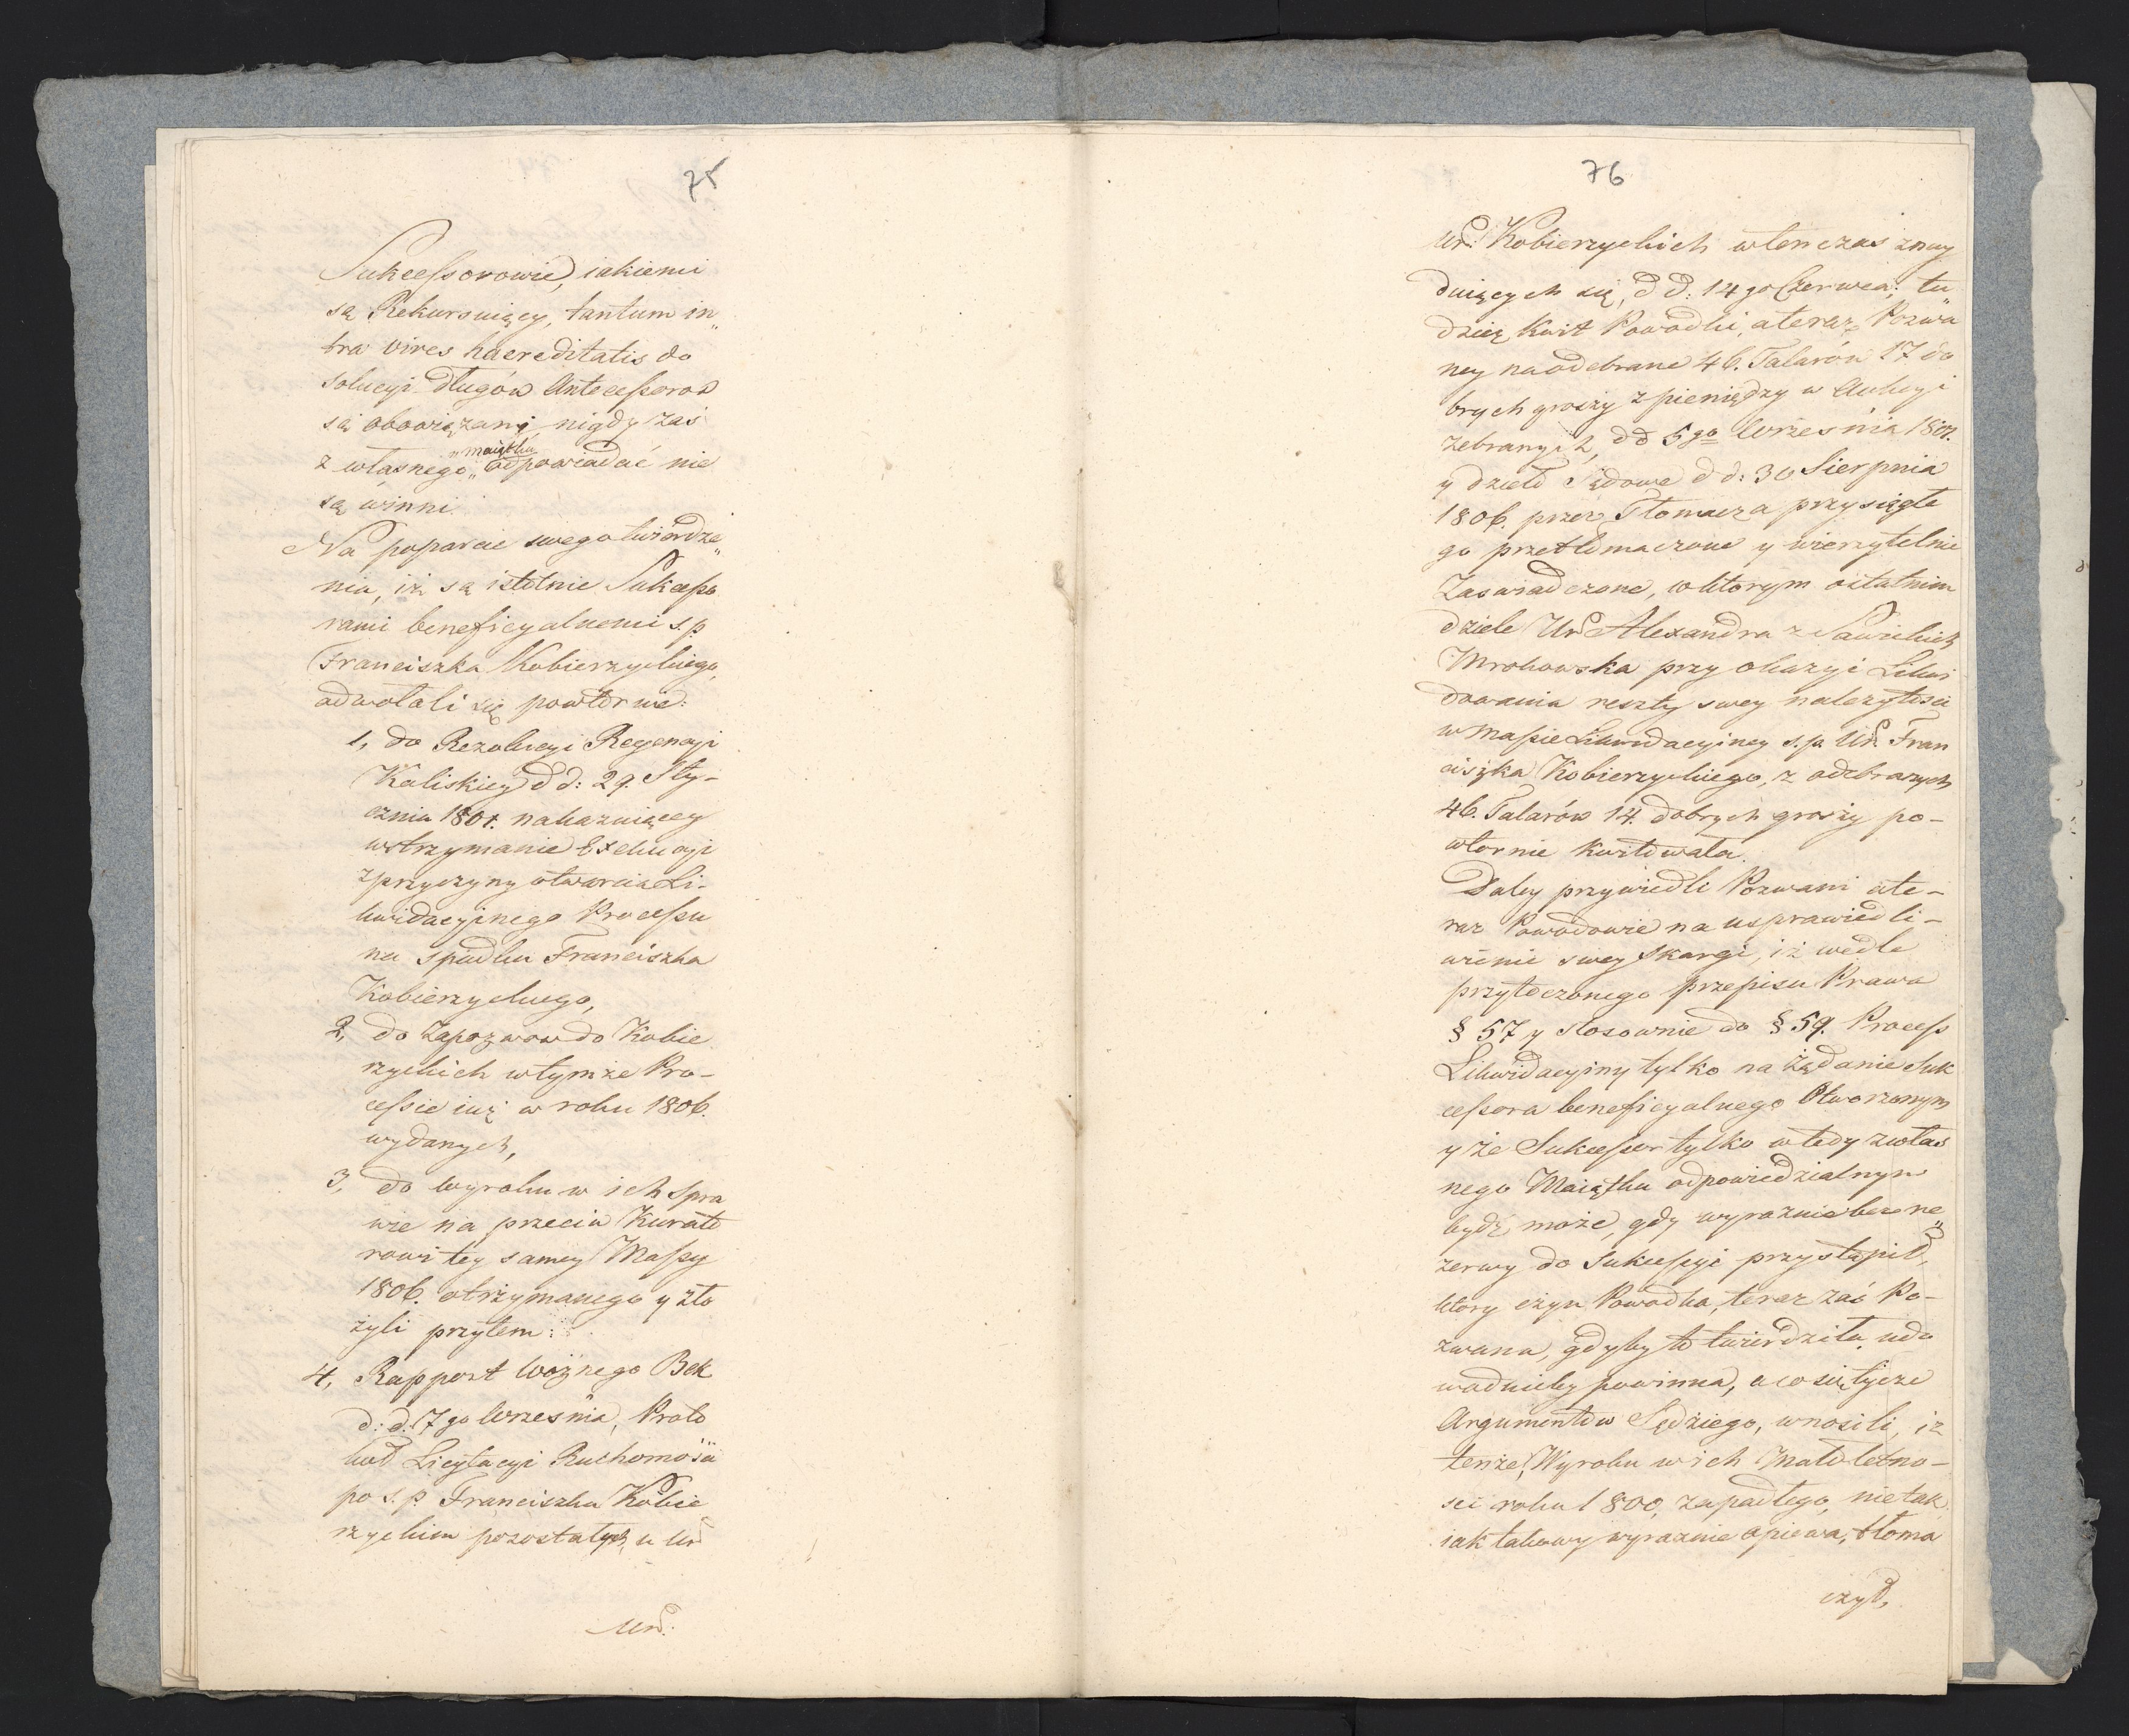 75
Sukcessorowie, iakiemi
są Rekursuiący, tantum in„
tra vires haereditatis do
solucyi długów Antecessorow
są obowiązani, nigdy zaś
z własnego „maiątku„ odpowiadać nie
są winni.
Na poparcie swego twierdze„
nia, iż są istotnie Sukcesso
rami beneficyalnemi s. p.
Franciszka Kobierzyckiego,
odwołali się powtórnie:
1, do Rezolucyi Regencyi
Kaliskiey d d: 29. Sty-
cznia 1801. nakazuiącey
wstrzymanie Exekucyi
z przyczyny otwarcia Li-
kwidacyjnego Processu
na spadku Franciszka
Kobierzyckiego,
2, do Zapozwow do Kobie
rzyckich w tymże Pro-
cessie iuż w roku 1806.
wydanych,
3, do wyroku w ich spra
wie na przeciw Kurato
rowi tey samey Massy
1806. otrzymanego y zło
żyli przytem:
4, Rapport Woźnego Bek
d: d. 7go Września, Proto
kuł Licytacyi Ruchomości
po s. p. Franciszku Kobie
rzyckim pozostałych u Ur
Ur:
76
Ur: Kobierzyckich wtenczas znay
duiących się, d d: 14go Czerwca; tu
dzież Kwit Powodki, a teraz Pozwa„
ney na odebrane 46. Talarów 17 do
brych groszy z pieniędzy w Aukcyi
zebranych, d d 5go Września 1807.
y dzieło Sądowe d d: 30 Sierpnia
1806. przez Tłomacza przysięgłe
go przetłomaczone y wierzytelnie
Zaswiadczone, w ktorym ostatnim
dziele Ur Alexandra z Sawickich
Mrokowska przy okazyi Likwi
dowania reszty swey należytości
w Massie Likwidacyiney s. p. Ur. Fran
ciszka Kobierzyckiego, z odebranych
46. Talarów 14. dobrych groszy po-
wtornie kwitowała.
Daley przywiedli Pozwani a te-
raz Powodowie na usprawiedli-
wienie swey Skargi, iż wedle
przytoczonego przepisu Prawa
§ 57 y stosownie do § 59. Process
Likwidacyiny tylko na żądanie Suk
cessora beneficyalnego Otworzonym
y że Sukcessor tylko wtedy z włas
nego Maiątku odpowiedzialnym
bydź może, gdy wyraznie bez re„
zerwy do Sukcessyi przystąpił,
ktory czyn Powodka, teraz zaś Po-
zwana, gdyby to twierdziła, udo
wodnićby powinna, a co się tycze
Argumentów Sędziego, wnosili, iż
tenże Wyroku w ich Małoletno-
ści roku 1800, zapadłego, nie tak
iak takowy wyraznie opiewa, tłoma
czył,